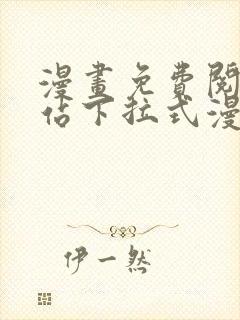 漫畫免費閱
佔下拉式漫
伊一然